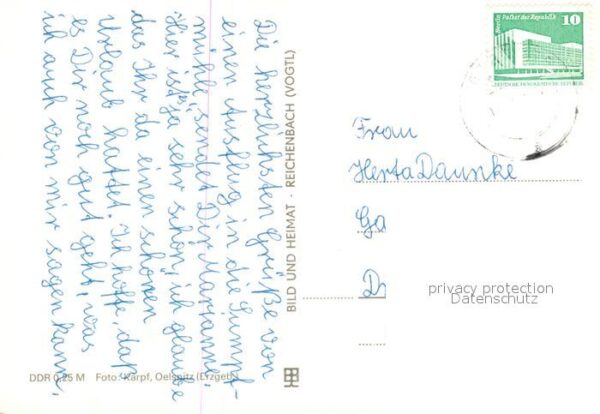 Die herzlichsten Grüße von
einem Ausflug in die Sumpf-
mühle sendet Dir Marianne.
Hier ist ja sehr schön, ich glaube
das Ihr da einen schönen
Urlaub hattet. Ich hoffe, daß
es Dir noch gut geht, was
ich auch von mir sagen kann.
DDR 0,25 M Foto: Karpf, Oelsnitz (Erzgeb.)
BILD UND HEIMAT · REICHENBACH (VOGTL)
Berlin Palast der Republik
10
DEUTSCHE DEMOKRATISCHE REPUBLIK
Frau
Herta Daunke
Ga
D
privacy protection
Datenschutz